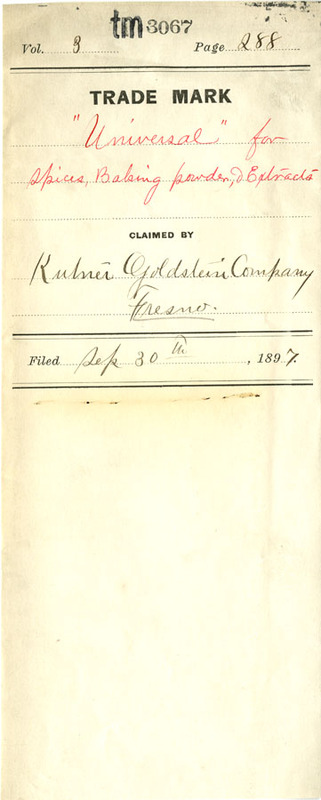 tm 3067
Vol. 3 Page 288
TRADE MARK
"Universal" for
Spices, Baking powder, & Extracts
CLAIMED BY
Kutner Goldstein Company
Fresno.
Filed Sep 30th, 1897.